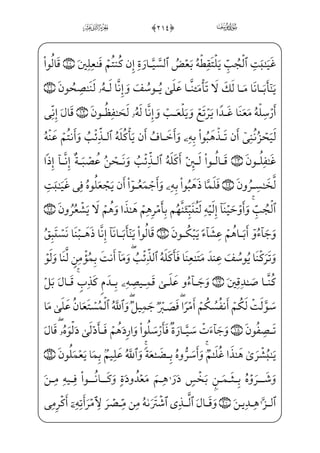 سورة يوسف ﴿٢١٤﴾ الجزء الثاني عشر
غَيَـٰبَتِ ٱلْجُبِّ يَلْتَقِطْهُ بَعْضُ ٱلسَّيَّارَةِ إِن كُنتُمْ فَـٰعِلِينَ ۝ قَالُوا۟
يَـٰٓأَبَانَا مَا لَكَ لَا تَأْمَ۫نَّا عَلَىٰ يُوسُفَ وَإِنَّا لَهُۥ لَنَـٰصِحُونَ ۝
أَرْسِلْهُ مَعَنَا غَدًا يَرْتَعْ وَيَلْعَبْ وَإِنَّا لَهُۥ لَحَـٰفِظُونَ ۝ قَالَ إِنِّى
لَيَحْزُنُنِىٓ أَن تَذْهَبُوا۟ بِهِۦ وَأَخَافُ أَن يَأْكُلَهُ ٱلذِّئْبُ وَأَنتُمْ عَنْهُ
غَـٰفِلُونَ ۝ قَالُوا۟ لَئِنْ أَكَلَهُ ٱلذِّئْبُ وَنَحْنُ عُصْبَةٌ إِنَّآ إِذًا
لَّخَـٰسِرُونَ ۝ فَلَمَّا ذَهَبُوا۟ بِهِۦ وَأَجْمَعُوٓا۟ أَن يَجْعَلُوهُ فِى غَيَـٰبَتِ
ٱلْجُبِّ ۚ وَأَوْحَيْنَآ إِلَيْهِ لَتُنَبِّئَنَّهُم بِأَمْرِهِمْ هَـٰذَا وَهُمْ لَا يَشْعُرُونَ ۝
وَجَآءُوٓ أَبَاهُمْ عِشَآءً يَبْكُونَ ۝ قَالُوا۟ يَـٰٓأَبَانَآ إِنَّا ذَهَبْنَا نَسْتَبِقُ
وَتَرَكْنَا يُوسُفَ عِندَ مَتَـٰعِنَا فَأَكَلَهُ ٱلذِّئْبُ ۖ وَمَآ أَنتَ بِمُؤْمِنٍ لَّنَا وَلَوْ
كُنَّا صَـٰدِقِينَ ۝ وَجَآءُو عَلَىٰ قَمِيصِهِۦ بِدَمٍ كَذِبٍ ۚ قَالَ بَلْ
سَوَّلَتْ لَكُمْ أَنفُسُكُمْ أَمْرًا ۖ فَصَبْرٌ جَمِيلٌ ۖ وَٱللَّهُ ٱلْمُسْتَعَانُ عَلَىٰ مَا
تَصِفُونَ ۝ وَجَآءَتْ سَيَّارَةٌ فَأَرْسَلُوا۟ وَارِدَهُمْ فَأَدْلَىٰ دَلْوَهُۥ ۖ قَالَ
يَـٰبُشْرَىٰ هَـٰذَا غُلَـٰمٌ ۚ وَأَسَرُّوهُ بِضَـٰعَةً ۚ وَٱللَّهُ عَلِيمٌۢ بِمَا يَعْمَلُونَ ۝
وَشَرَوْهُ بِثَمَنٍۭ بَخْسٍ دَرَٰهِمَ مَعْدُودَةٍ وَكَانُوا۟ فِيهِ مِنَ
ٱلزَّٰهِدِينَ ۝ وَقَالَ ٱلَّذِى ٱشْتَرَىٰهُ مِن مِّصْرَ لِٱمْرَأَتِهِۦٓ أَكْرِمِى